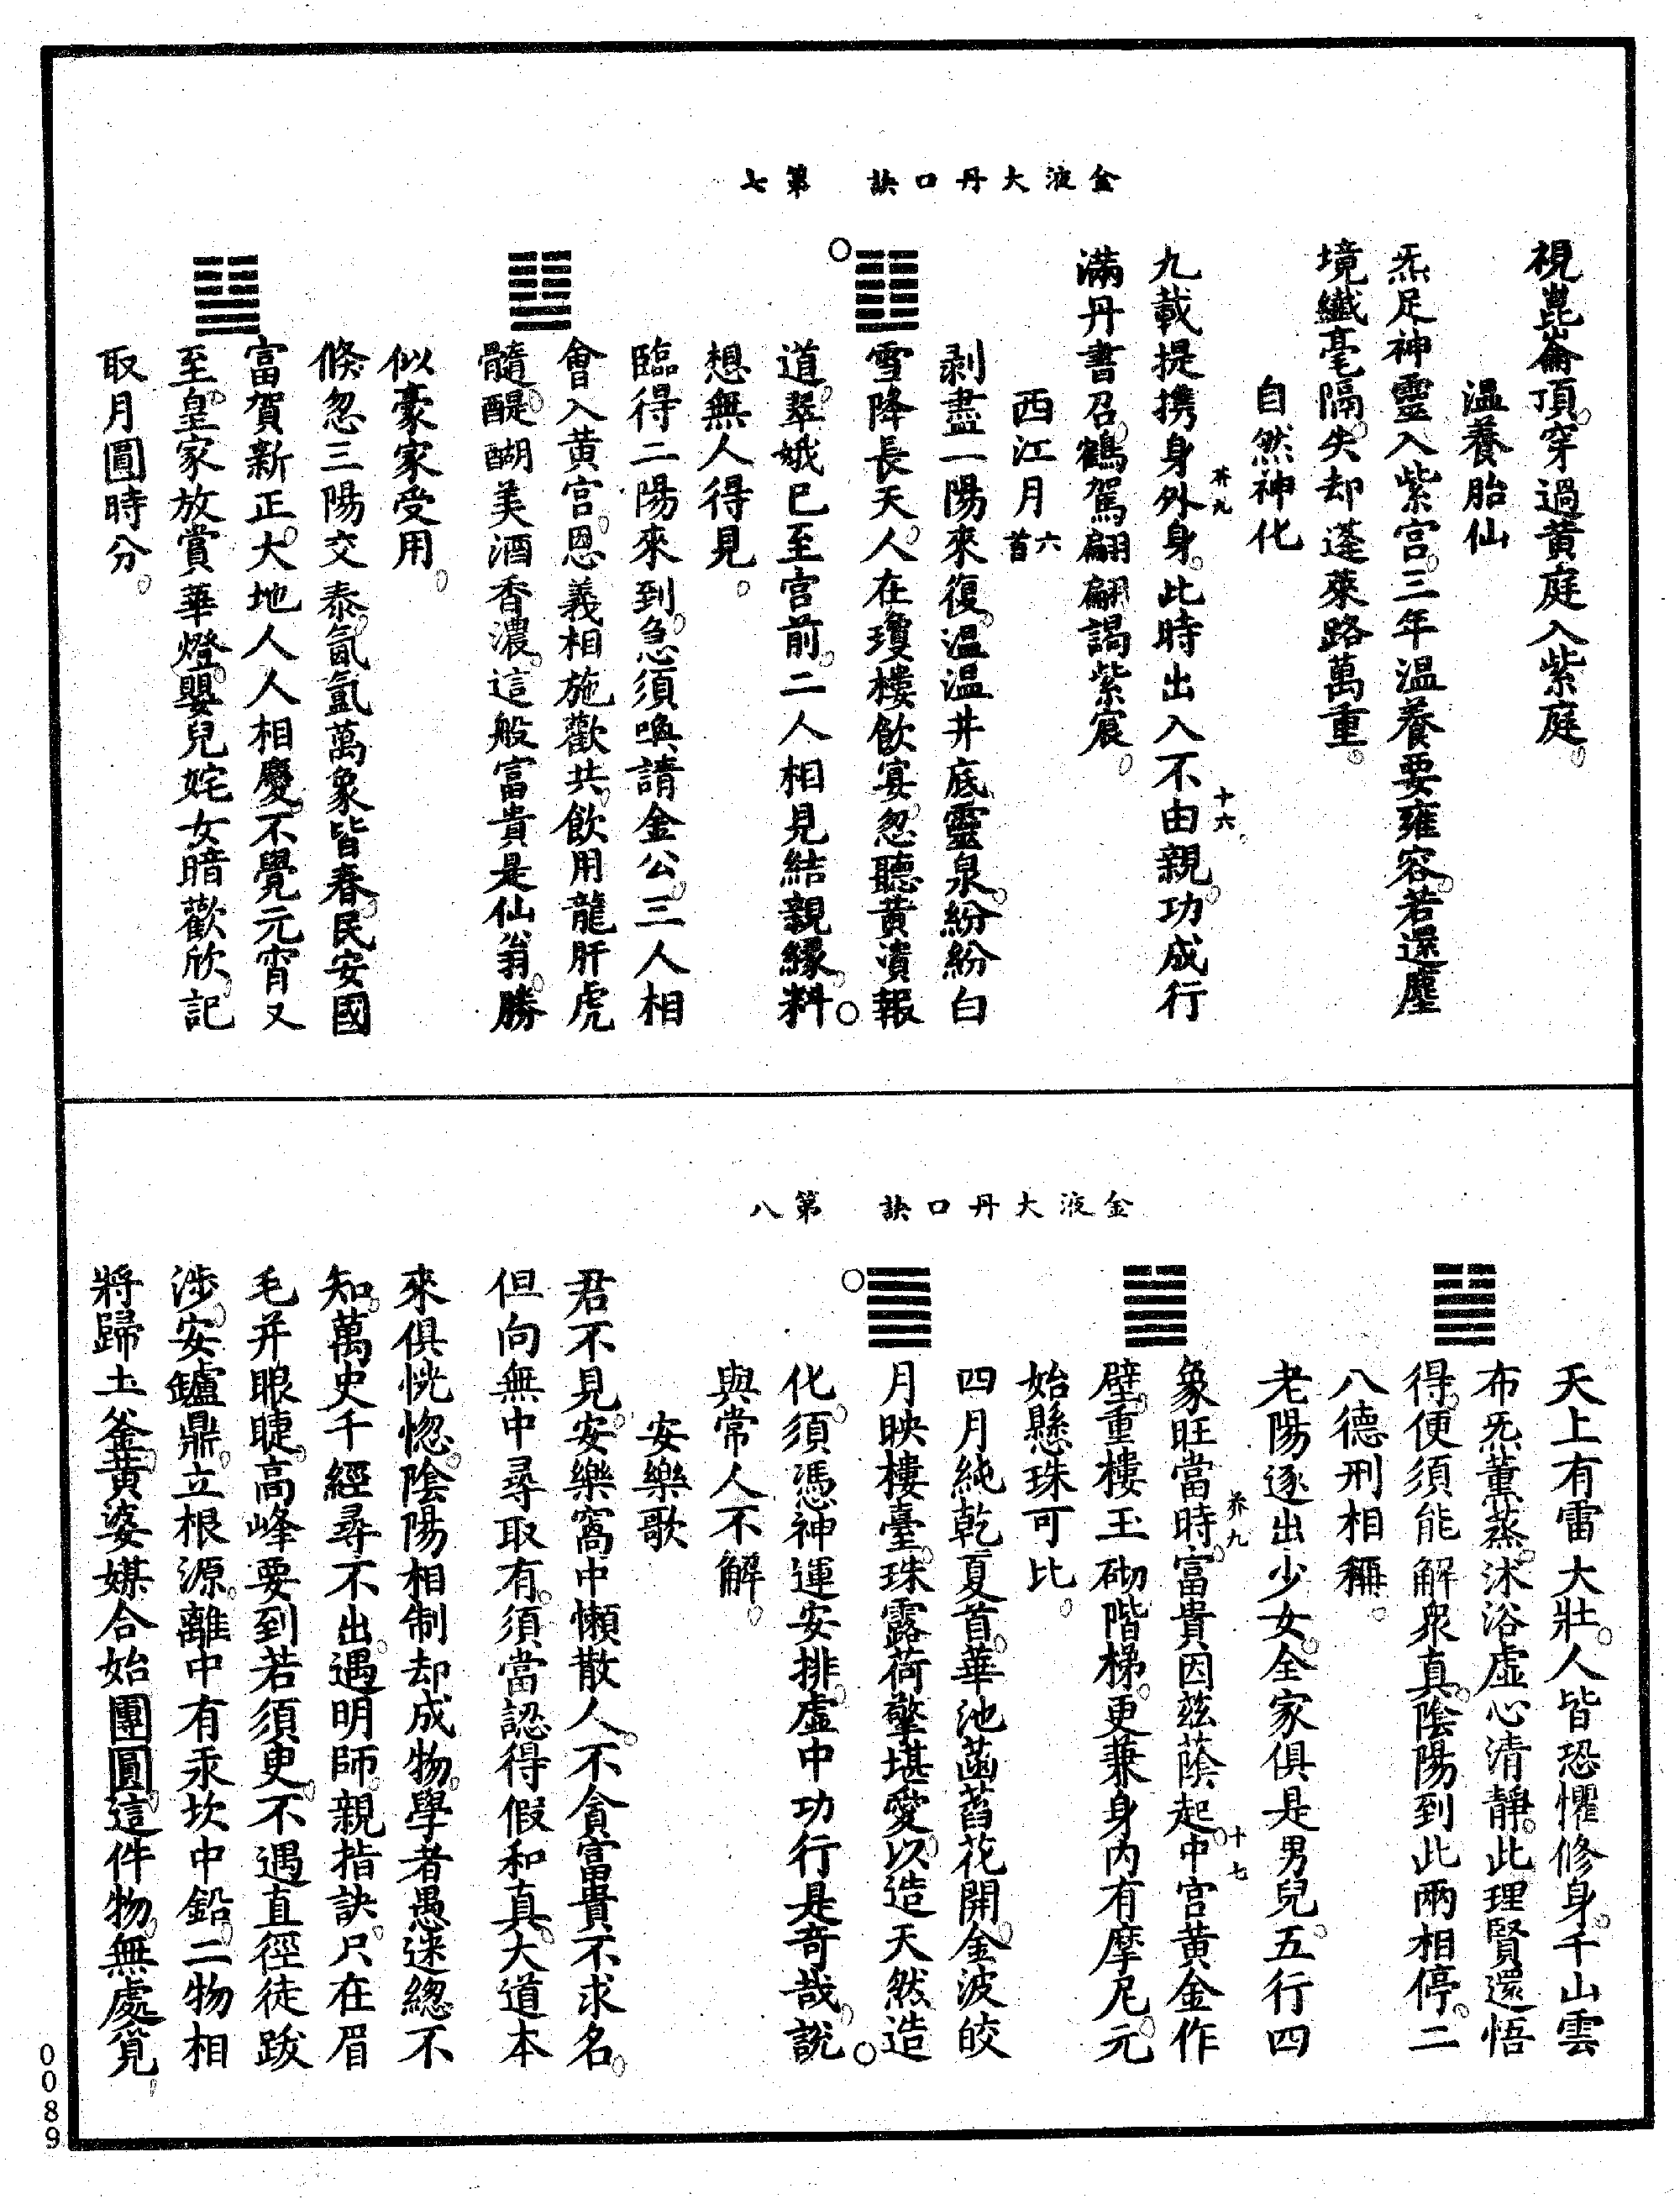 金液大丹口訣　第七
視崑崙頂穿過黃庭入紫庭
溫養胎仙
炁足神靈入紫宮三年溫養要雍容若還塵
境纖毫隔失却蓬萊路萬重
自然神化
九載提携身外身此時出入不由親功成行
芥九
十六
滿丹書召鶴駕翩翩謁紫宸
西江月六首
剥盡一陽來復溫溫井底靈泉紛紛白
雪降長天人在瓊樓飲宴忽聽黃瀆報
道翠娥已至宮前二人相見結親緣料
想無人得見
臨得二陽來到急須喚請金公三人相
會入黃宮恩義相施歡共飲用龍肝虎
髓醍醐美酒香濃這般富貴是仙翁勝
似豪家受用
倏忽三陽交泰氤氳萬象皆春民安國
富賀新正大地人人相慶不覺元宵又
至皇家放賞華燈嬰兒姹女暗歡欣記
取月圓時分
金液大丹口訣　第八
天上有雷大壯人皆恐懼修身千山雲
布炁薰蒸沐浴虛心清靜此理賢還悟
得便須能解衆真陰陽到此兩相停二
八德刑相稱
老陽逐出少女全家俱是男兒五行四
象旺當時富貴因茲蔭起中宮黃金作
芥九
十七
壁重樓玉砌階梯更兼身內有摩尼元
始懸珠可比
四月純乾夏首華池菡萏花開金波皎
月映樓臺珠露荷擎堪愛以造天然造
化須憑神運安排虛中功行是奇哉説
與常人不解
安樂歌
君不見安樂窩中懶散人不貪富貴不求名
但向無中尋取有須當認得假和真大道本
來俱恍惚陰陽相制却成物學者愚迷總不
知萬史千經尋不出遇明師親指訣只在眉
毛并眼睫高峰要到若須臾不遇直徑徒跋
涉安鑪鼎立根源離中有汞坎中鉛二物相
將歸土釜黃婆媒合始團圓這件物無處覓
0089